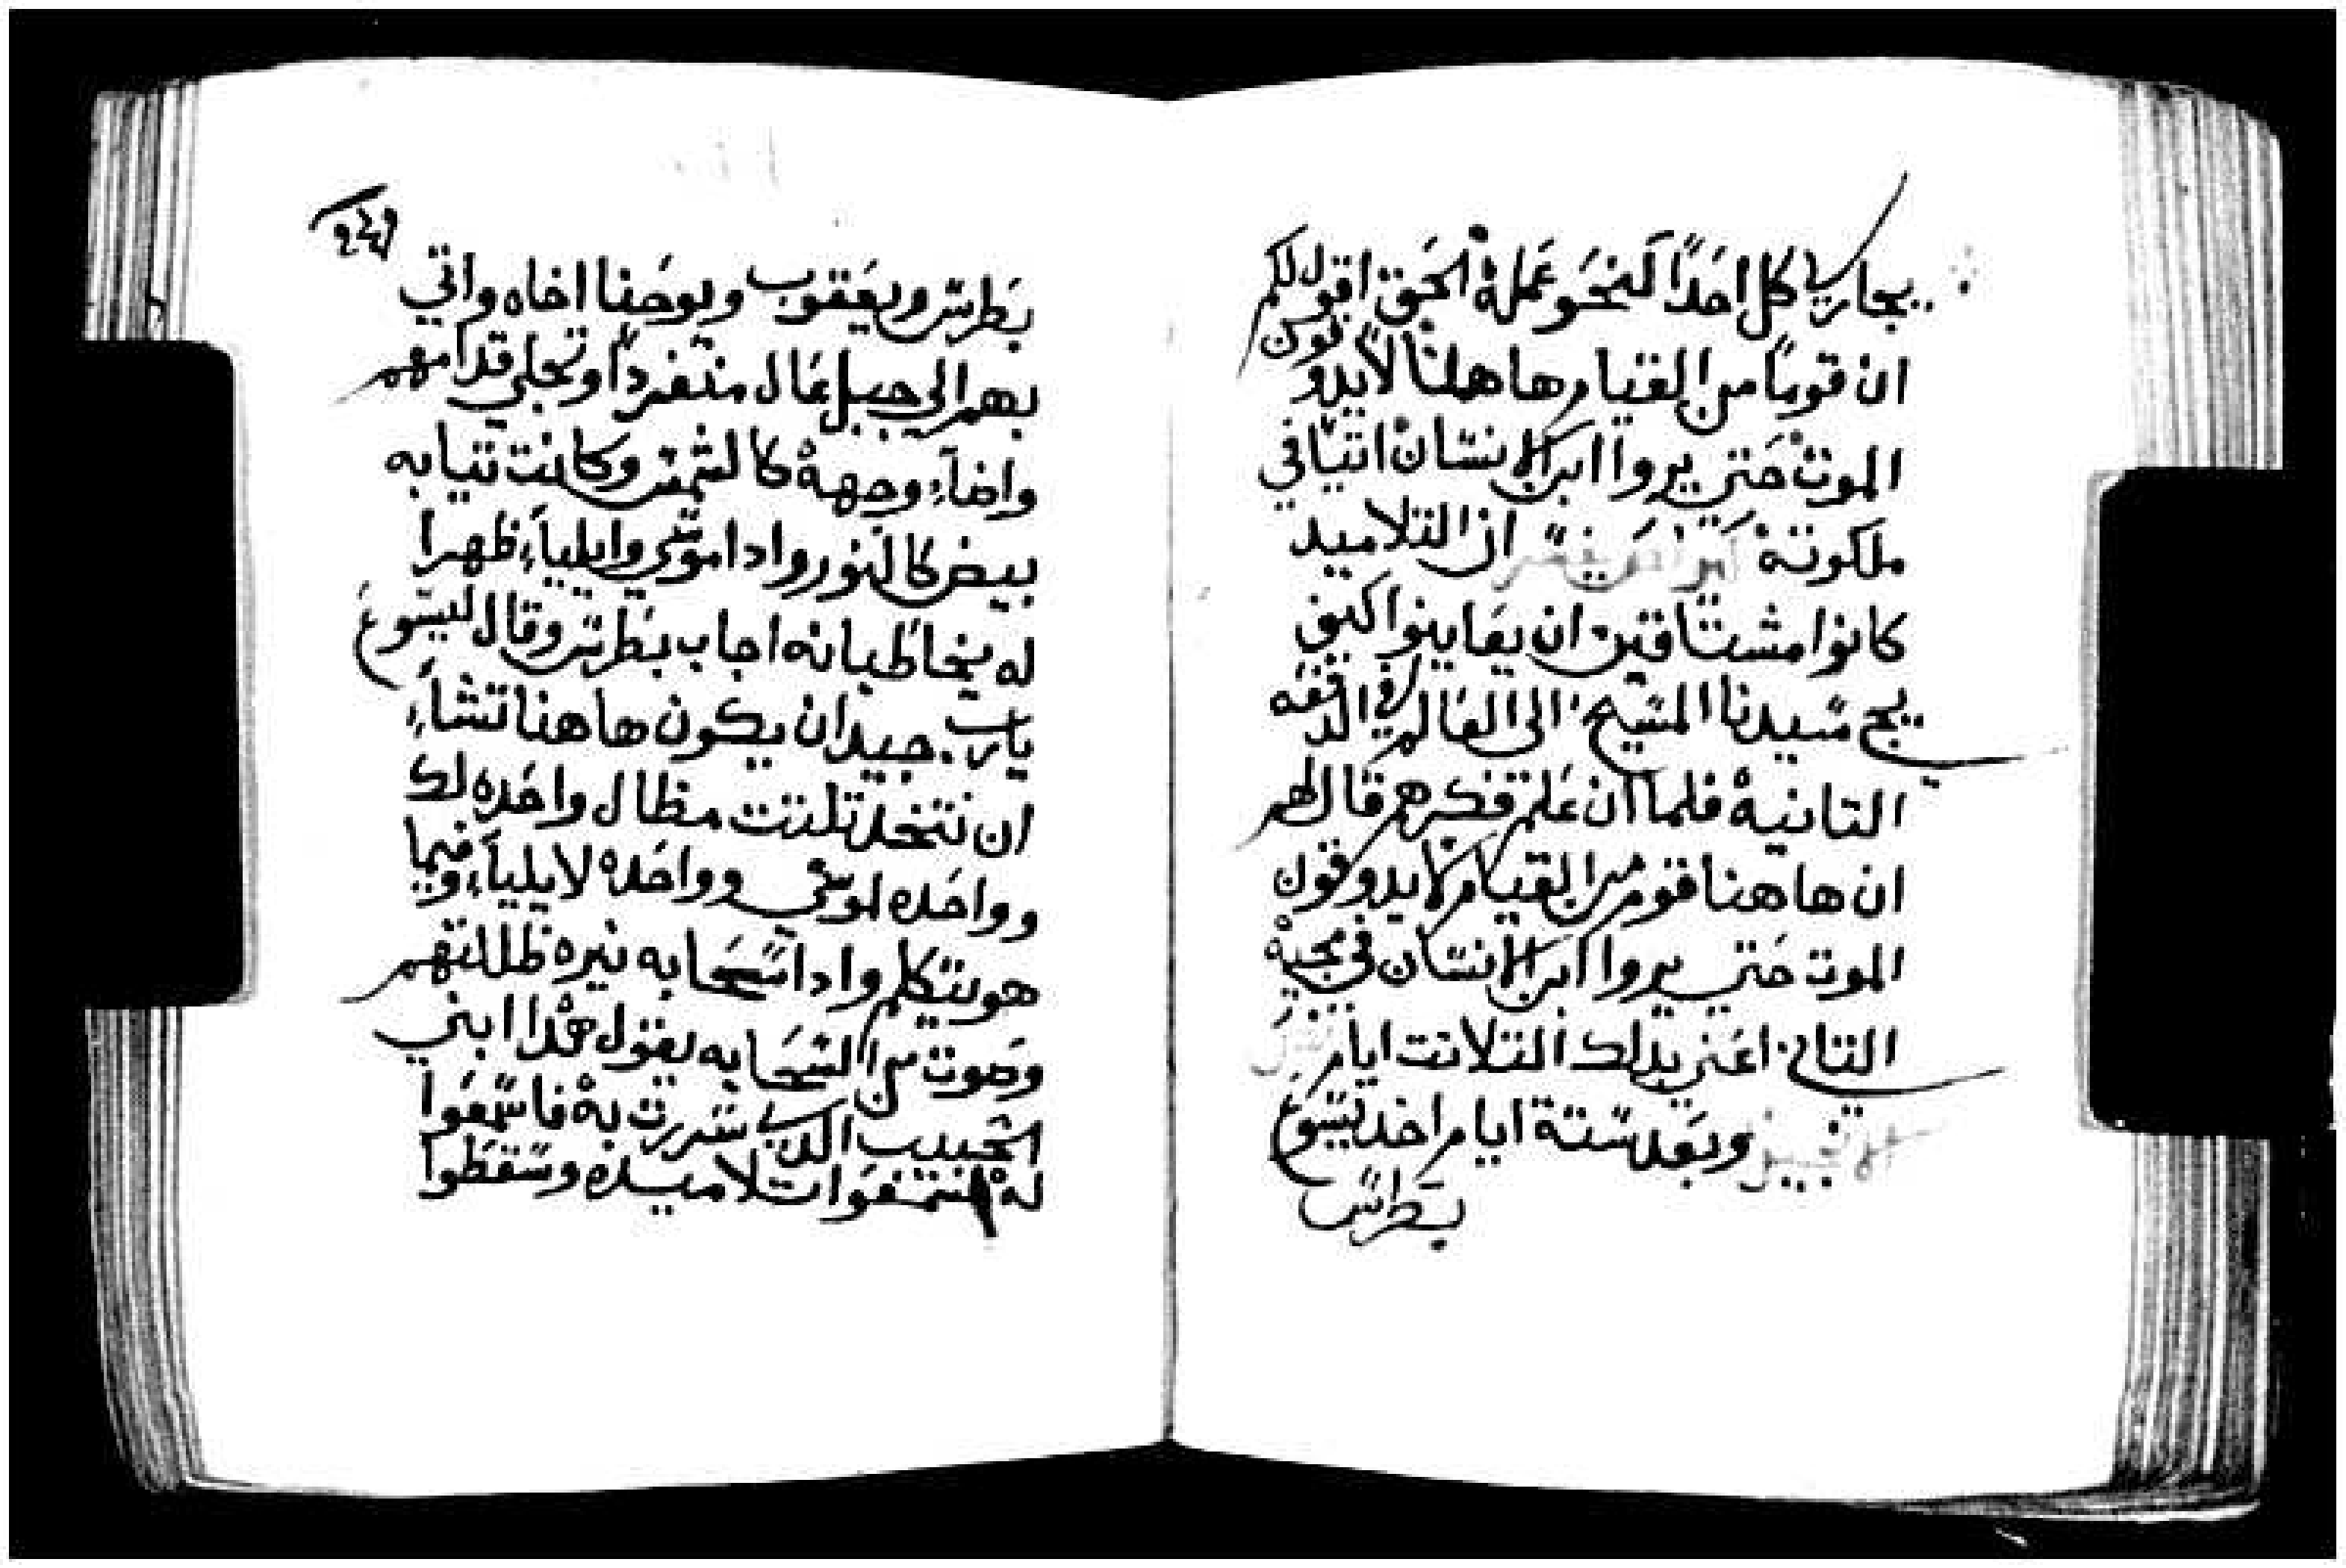 يجازي كل احدًا كنحو عمله الحق اقول لكم
ان قومًا من القيام هاهنا لا يدوقون
الموت حتي يروا ابن الانسان اتيًا في
ملكوته ان التلاميد
كانوا مشتاقين ان يعاينوا كيف
يجي سيدنا المسيح الى العالم في الدفعه
التانيه فلما ان علم فكرهم قال لهم
ان هاهنا قوم من القيام لا يدوقون
الموت حتي يروا ابن الانسان في مجيه
التاني اعني بدلك التلاتت ايام
وبعد ستة ايام اخد يسوع
بطرس
٢٤٩
بطرس ويعقوب ويوحنا اخاه واتي
بهم الي جبل عال منفردًا وتجلي قدامهم
واضاء وجهه كالشمس وكانت تيابه
بيض كالنور وادا موسي وايلياء ظهرا
له يخاطبانه اجاب بطرس وقال ليسوع
يارب جيد ان يكون هاهنا تشاء
ان نتخد تلتت مظال واحده لك
وواحده لموسي وواحده لايلياء وفيما
هو يتكلم وادا سحابه نيره ظللتهم
وصوت من السحابه يقول هدا ابني
الحبيب الدي سررت به فاسمعوا
له تلاميده وسقطوا